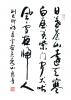 日暮蒼山遠天寒
白屋貧柴門聞犬吠
風雪夜歸人